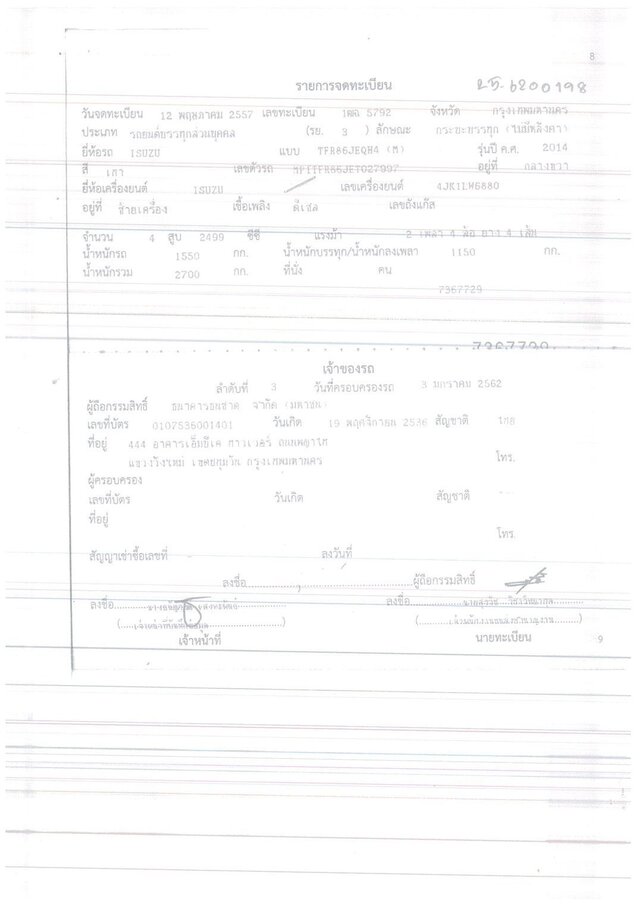 8
รายการจดทะเบียน
วันจดทะเบียน 12 พฤษภาคม 2557 เลขทะเบียน 1ฒฉ 5792 จังหวัด กรุงเทพมหานคร
ประเภท รถยนต์บรรทุกส่วนบุคคล (รย. 3 ) ลักษณะ กระบะบรรทุก (ไม่มีหลังคา)
ยี่ห้อรถ ISUZU แบบ TFR86JEQH4 (M) รุ่นปี ค.ศ. 2014
สี เทา เลขตัวรถ MP1TFR86JET027997 อยู่ที่ กลางขวา
ยี่ห้อเครื่องยนต์ ISUZU เลขเครื่องยนต์ 4JK1LW6880
อยู่ที่ ซ้ายเครื่อง เชื้อเพลิง ดีเซล เลขถังแก๊ส
จำนวน 4 สูบ 2499 ซีซี แรงม้า 2 เพลา 4 ล้อ ยาง 4 เส้น
น้ำหนักรถ 1550 กก. น้ำหนักบรรทุก/น้ำหนักลงเพลา 1150 กก.
น้ำหนักรวม 2700 กก. ที่นั่ง คน
7367729
7367729
เจ้าของรถ
ลำดับที่ 3 วันที่ครอบครองรถ 3 มกราคม 2562
ผู้ถือกรรมสิทธิ์ ธนาคารธนชาต จำกัด (มหาชน)
เลขที่บัตร 0107536001401 วันเกิด 19 พฤศจิกายน 2536 สัญชาติ ไทย
ที่อยู่ 444 อาคารเอ็มบีเค ทาวเวอร์ ถนนพญาไท
แขวงวังใหม่ เขตปทุมวัน กรุงเทพมหานคร โทร.
ผู้ครอบครอง
เลขที่บัตร วันเกิด สัญชาติ
ที่อยู่
โทร
สัญญาเช่าซื้อเลขที่ ลงวันที่
ลงชื่อ ผู้ถือกรรมสิทธิ์
ลงชื่อ ลงชื่อ
เจ้าหน้าที่ นายทะเบียน
9